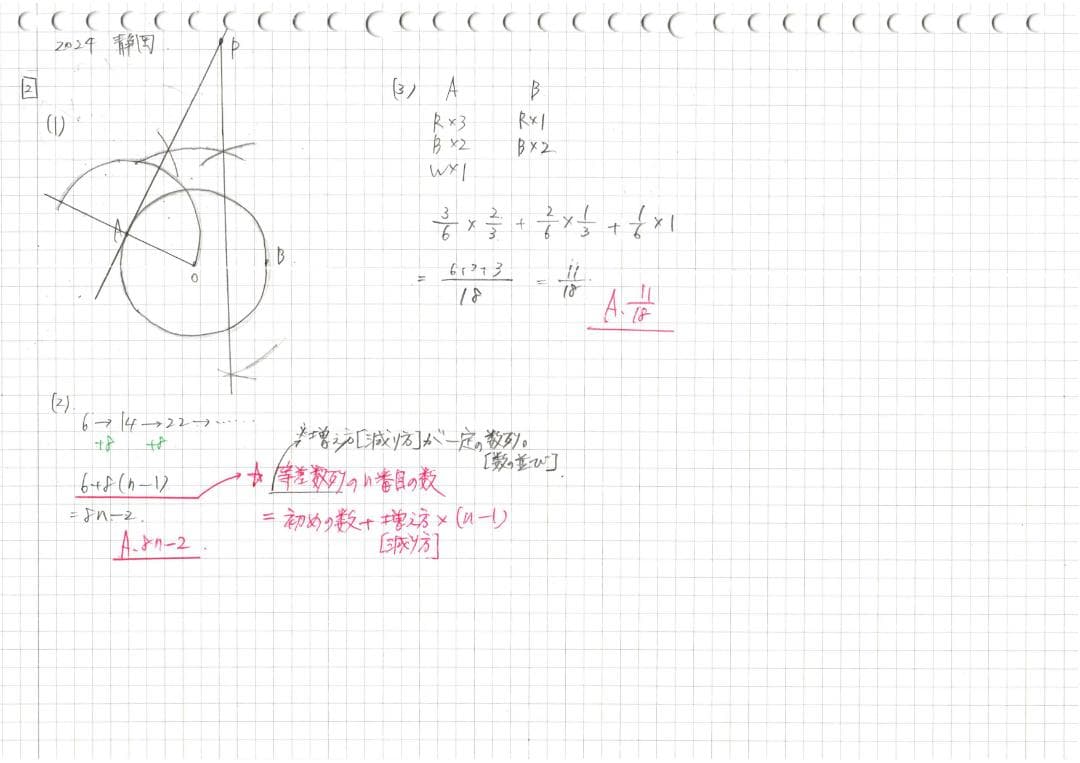 2024 静岡
2
(1)
P
A
O
B
(2)
6→14→22→……
+8 +8
6+8(n-1)
=8n-2.
A. 8n-2.
※増え方[減り方]が一定の数列。
[数の並び]
☆ 等差数列のn番目の数
= 初めの数+増え方×(n-1)
[減り方]
(3) A B
R×3 R×1
B×2 B×2
W×1
3/6 × 2/3 + 2/6 × 1/3 + 1/6 × 1
= 6+2+3/18 = 11/18.
A. 11/18